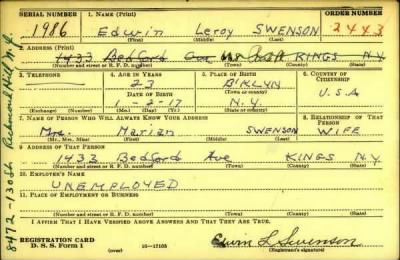 SERIAL NUMBER 1. NAME (Print) ORDER NUMBER
1986 Edwin Leroy SWENSON 2443
(First) (Middle) (Last)
2. ADDRESS (Print)
1433 Bedford Ave KINGS N.Y.
(Number and street or R. F. D. number) (Town) (County) (State)
3. TELEPHONE 4. AGE IN YEARS 5. PLACE OF BIRTH 6. COUNTRY OF CITIZENSHIP
23 B'KLYN
DATE OF BIRTH (Town or county) U.S.A
1-2-17 N.Y.
(Exchange) (Number) (Mo.) (Day) (Yr.) (State or country)
7. NAME OF PERSON WHO WILL ALWAYS KNOW YOUR ADDRESS 8. RELATIONSHIP OF THAT PERSON
Mrs. Marian SWENSON WIFE
(Mr., Mrs., Miss) (First) (Middle) (Last)
9. ADDRESS OF THAT PERSON
1433 Bedford Ave KINGS N.Y
(Number and street or R. F. D. number) (Town) (County) (State)
10. EMPLOYER'S NAME
UNEMPLOYED
11. PLACE OF EMPLOYMENT OR BUSINESS
(Number and street or R. F. D. number) (Town) (County) (State)
I AFFIRM THAT I HAVE VERIFIED ABOVE ANSWERS AND THAT THEY ARE TRUE.
REGISTRATION CARD
D. S. S. Form 1 (over) 16-17105 Edwin L Swenson
(Registrant's signature)
8472-130 St. Richmond Hill N.Y.